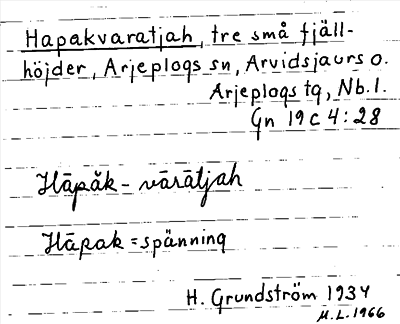 Hapakvaratjah, tre små fjäll-
höjder, Arjeplogs sn, Arvidsjaurs o.
Arjeplogs tg, Nb. l.
Gn 19 c 4:28
Hāpăk - vārātjah
Hāpak = spänning
H. Grundström 1934
M.L. 1966